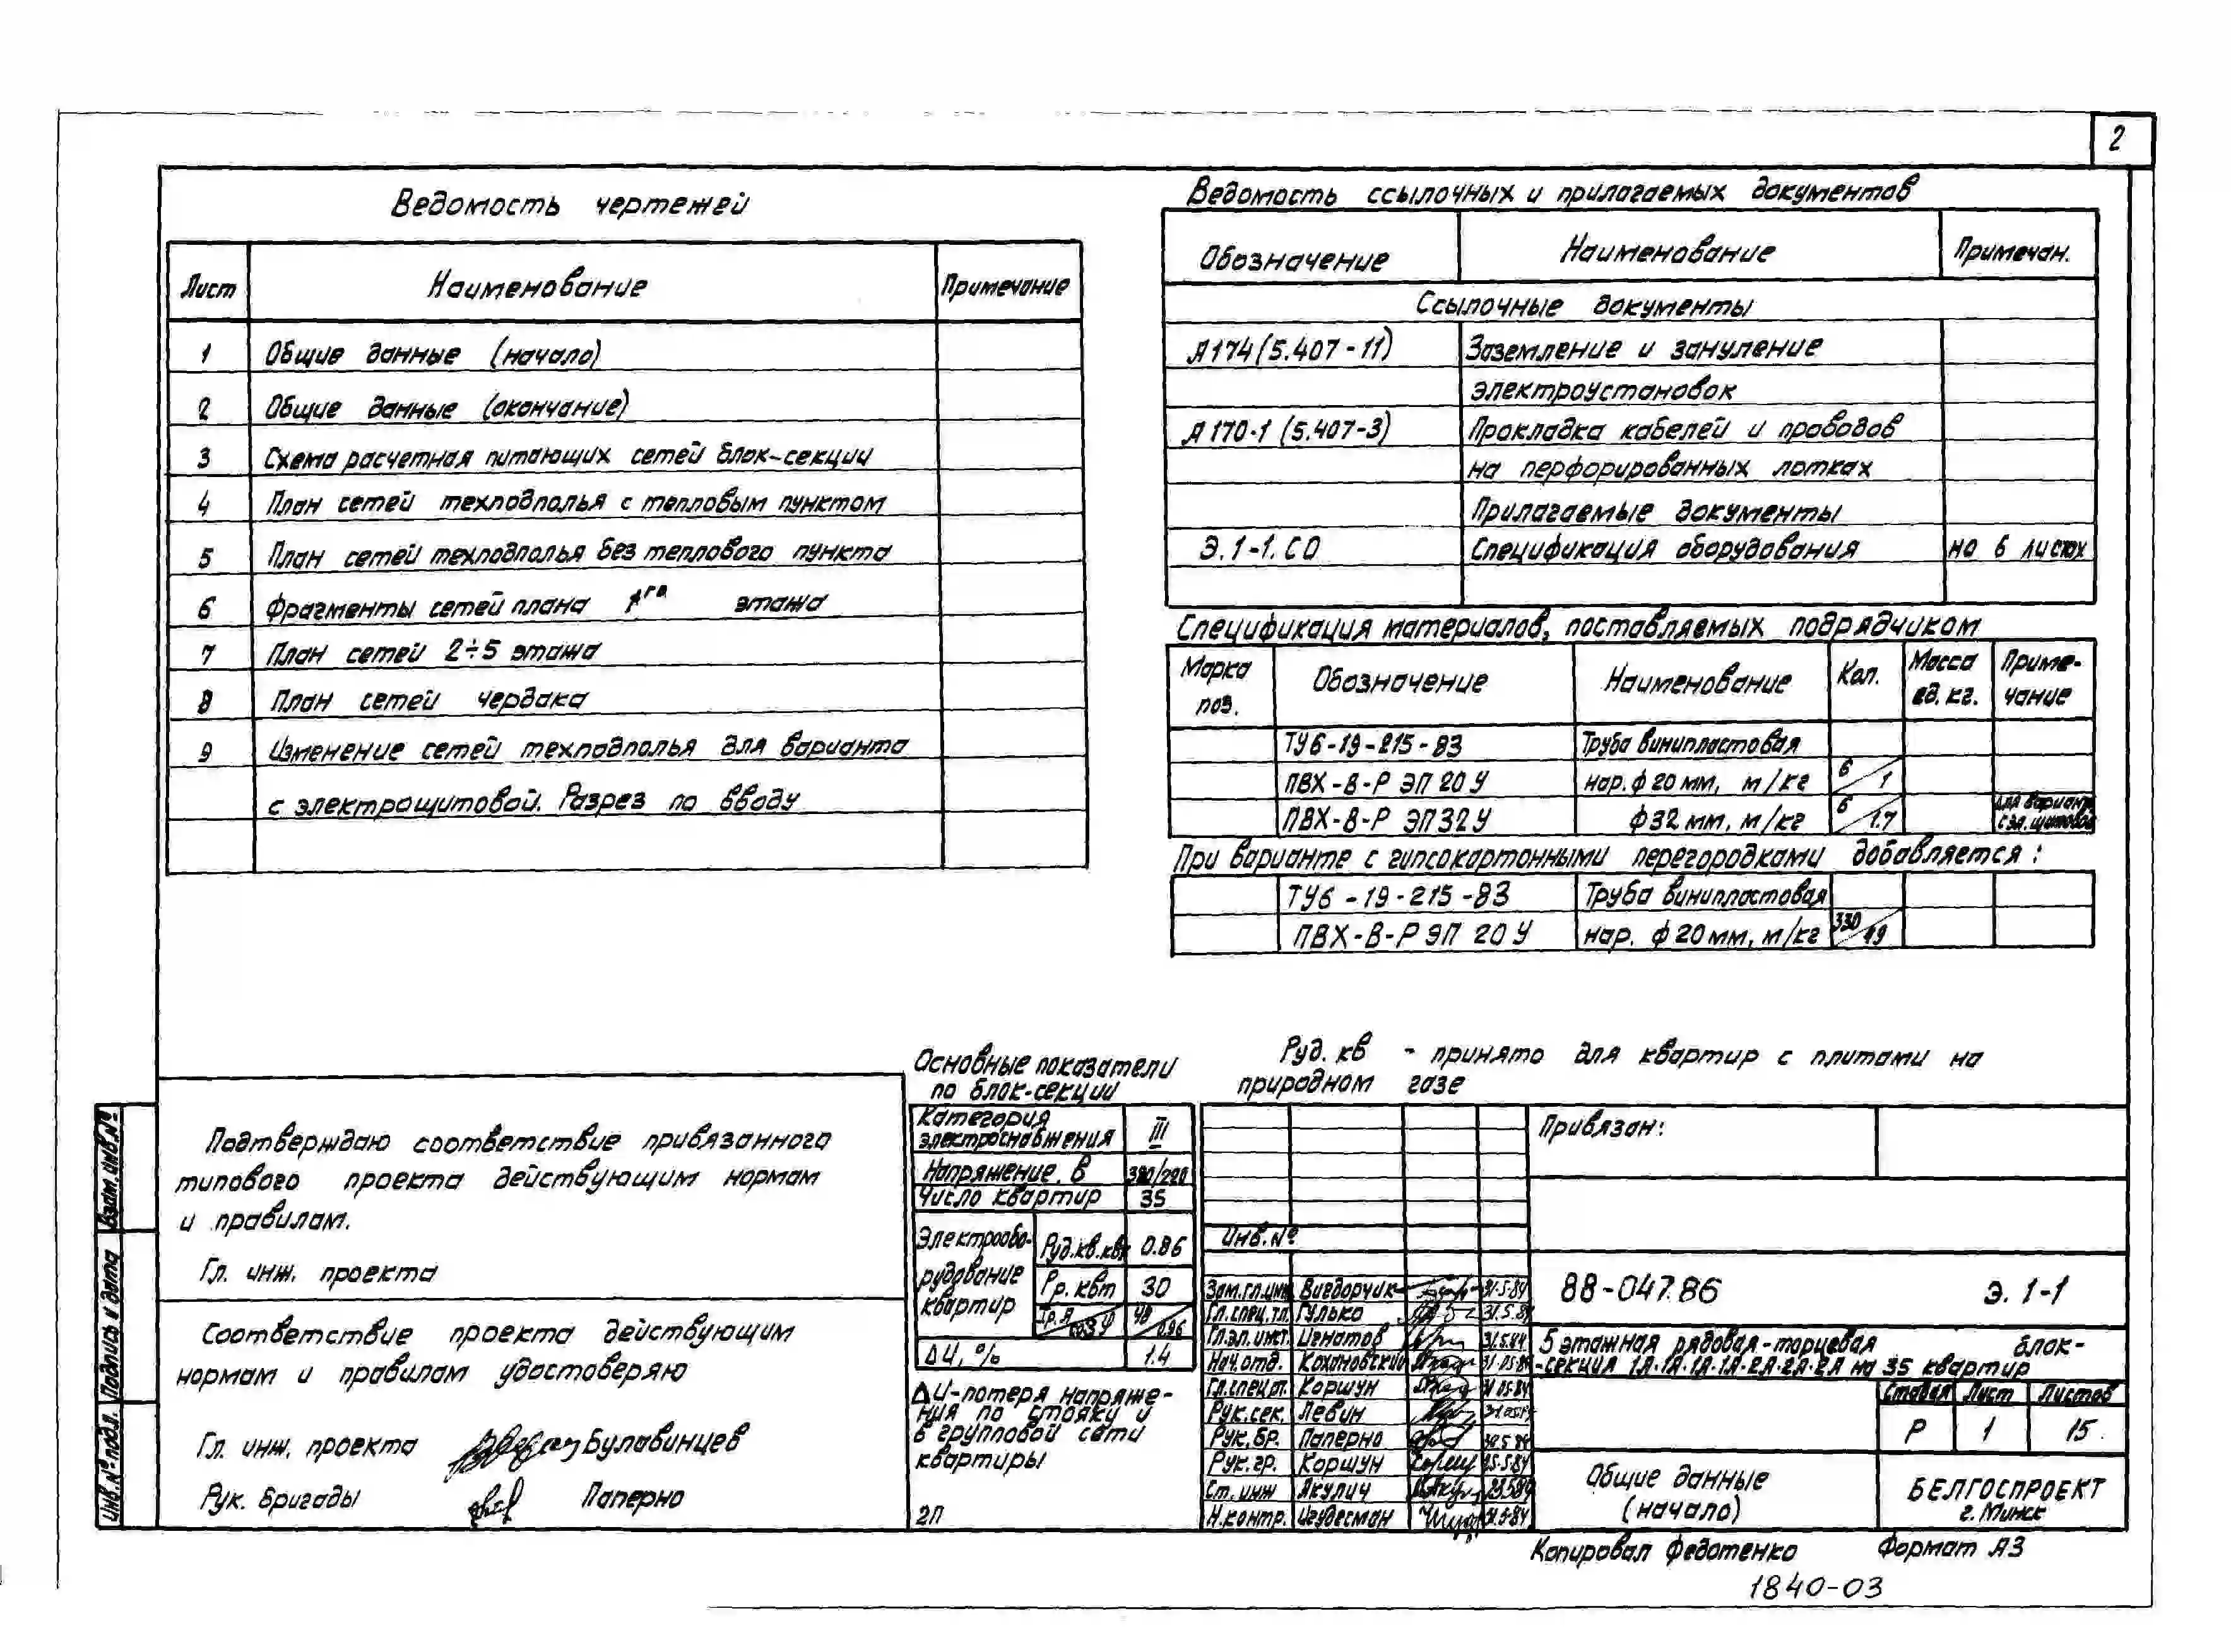 2
Ведомость чертежей
Лист Наименование Примечание
1 Общие данные (начало)
2 Общие данные (окончание)
3 Схема расчетная питающих сетей блок-секции
4 План сетей техподполья с тепловым пунктом
5 План сетей техподполья без теплового пункта
6 Фрагменты сетей плана 1го этажа
7 План сетей 2÷5 этажа
8 План сетей чердака
9 Изменение сетей техподполья для варианта
с электрощитовой. Разрез по вводу
Ведомость ссылочных и прилагаемых документов
Обозначение Наименование Примечан.
Ссылочные документы
А174(5.407-11) Заземление и зануление
электроустановок
А170-1 (5.407-3) Прокладка кабелей и проводов
на перфорированных лотках
Прилагаемые документы
Э.1-1.СО Спецификация оборудования на 6 листах
Спецификация материалов, поставляемых подрядчиком
Марка поз. Обозначение Наименование Кол. Масса ед.кг. Приме-чание
ТУ6-19-215-83 Труба винипластовая
ПВХ-В-Р ЭП 20У нар. ф20мм, м/кг 6/1
ПВХ-В-Р ЭП32У ф32мм, м/кг 6/1.7 для вариант. с эл. щитовой
При варианте с гипсокартонными перегородками добавляется:
ТУ6-19-215-83 Труба винипластовая
ПВХ-В-Р ЭП 20У нар. ф20мм, м/кг 330/49
Руд. кв - принято для квартир с плитами на
природном газе
Основные показатели
по блок-секции
Категория электроснабжения III
Напряжение, В 380/220
Число квартир 35
Электрообо-рудование квартир
Руд.кв.квт 0.86
Рр. квт 30
Iр.А/cosφ 48/0.96
ΔU, % 1.4
ΔU-потеря напряже-
ния по стояку и
в групповой сети
квартиры
2П
Подтверждаю соответствие привязанного
типового проекта действующим нормам
и правилам.
Гл. инж. проекта
Соответствие проекта действующим
нормам и правилам удостоверяю
Гл. инж. проекта Булавинцев
Рук. бригады Паперно
Взам.инв.№
Подпись и дата
Инв.№ подл.
Привязан:
Инв.№
Зам.гл.инж. Вигдорчик 31-5-84
Гл.спец.тл. Гулько 31.5.84
Гл.эл.инст. Игнатов 31.5.84
Нач.отд. Кохановский 31.05.84
Гл.спец.от. Коршун 31.05.84
Рук.сек. Левин
Рук.бр. Паперно 30.5.84
Рук.гр. Коршун 25.5.84
Ст.инж Якулич 23.5.84
Н.контр. Игудесман 31.5.84
88-047.86 Э. 1-1
5 этажная рядовая-торцевая блок-
-секция 1А.1А.1А.1А.2А.2А.2А на 35 квартир
Стадия Лист Листов
Р 1 15
Общие данные
(начало)
БЕЛГОСПРОЕКТ
г. Минск
Копировал Федотенко Формат А3
1840-03